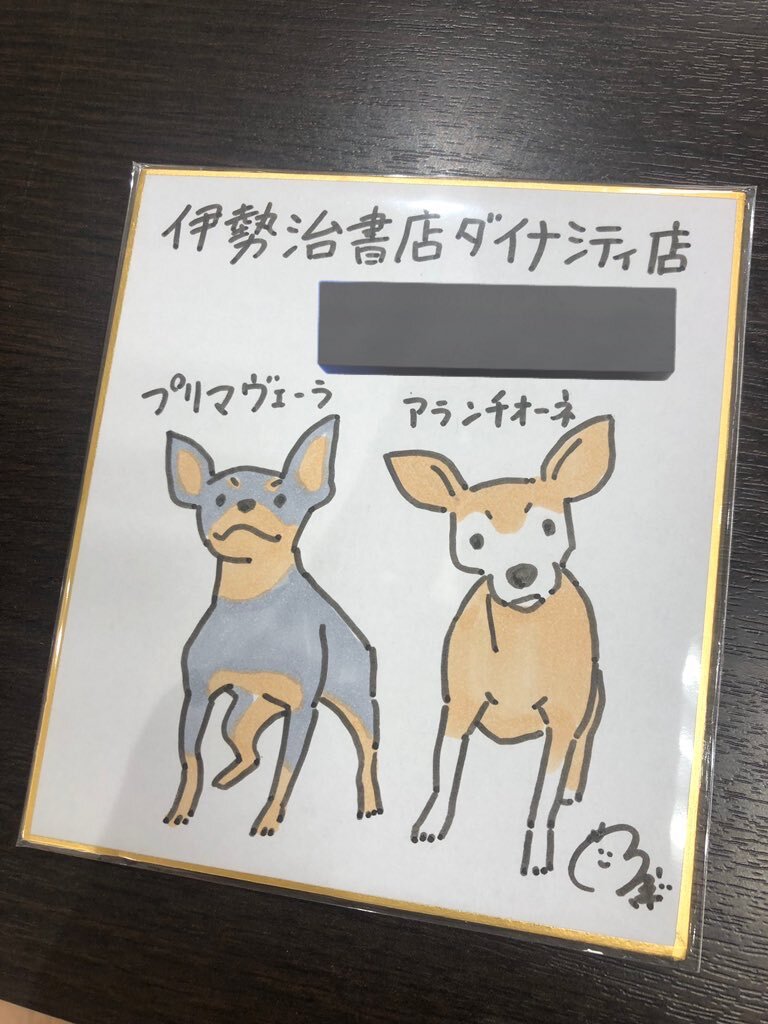 伊勢治書店ダイナシティ店
プリマヴェーラ
アランチオーネ